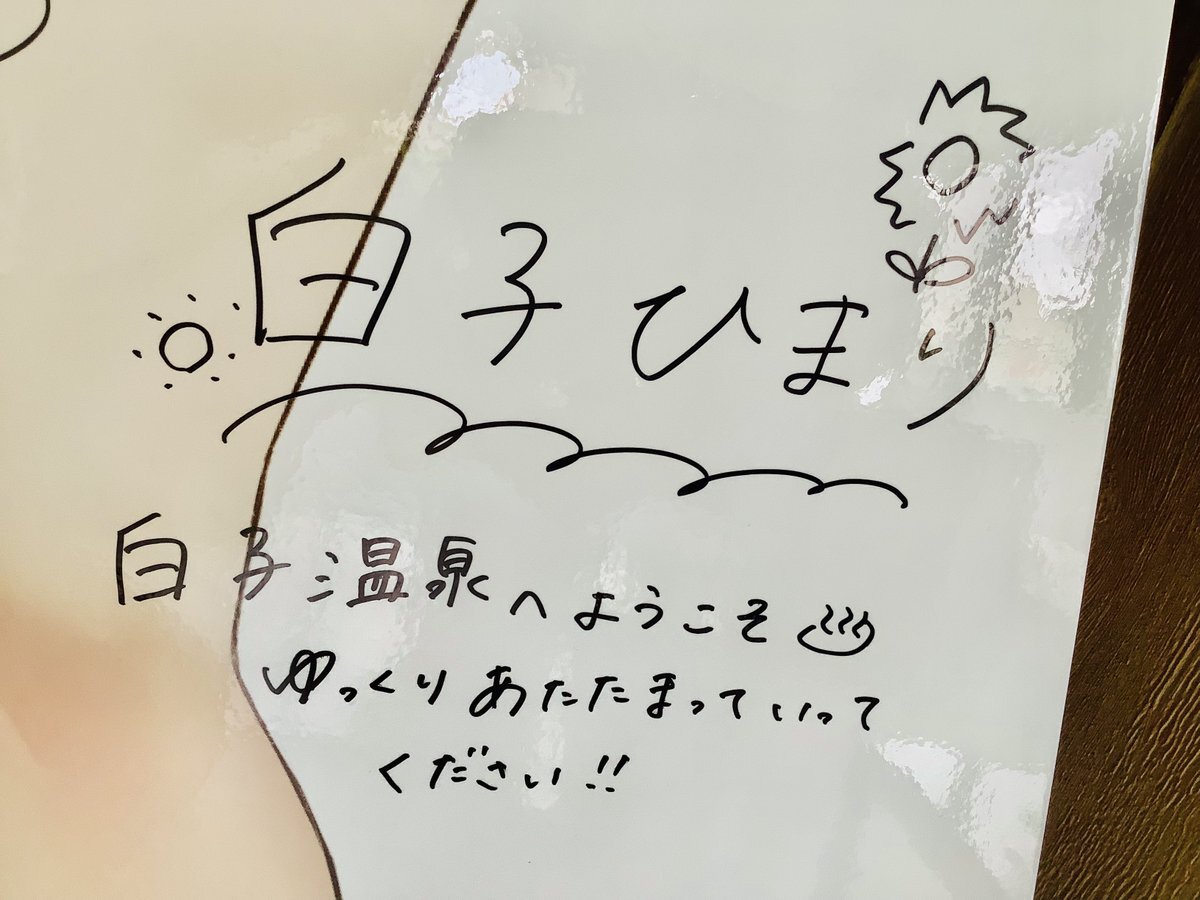 白子ひまり
白子温泉へようこそ♨
ゆっくりあたたまっていって
ください!!